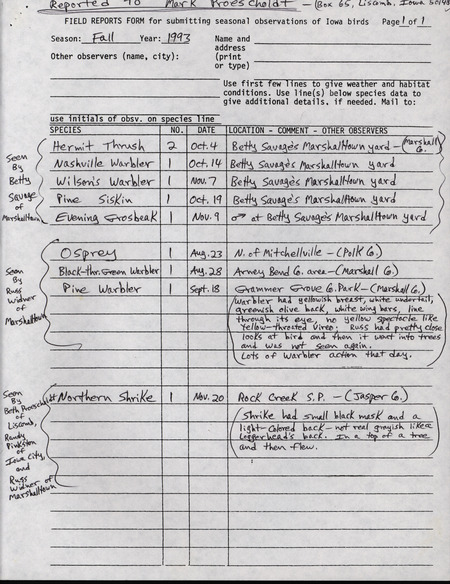 Reported To Mark Proescholdt - (Box 65, Liscomb, Iowa
FIELD REPORTS FORM for submitting seasonal observations of Iowa birds Page 1 of 1
Season: Fall Year: 1993 Name and
address
Other observers (name, city): (print
or type)
Use first few lines to give weather and habitat
conditions. Use line(s) below species data to
give additional details. if needed. Mail to:
use initials of obsv. on species line
SPECIES NO. DATE LOCATION - COMMENT - OTHER OBSERVERS
Seen By Betty Savage of Marshalltown
Hermit Thrush 2 Oct. 4 Betty Savage's Marshalltown yard - (Marshall Co.
Nashville Warbler 1 Oct. 14 Betty Savage's Marshalltown yard
Wilson's Warbler 1 Nov. 7 Betty Savage's Marshalltown yard
Pine Siskin 1 Oct. 19 Betty Savage's Marshalltown yard
Evening Grosbeak 1 Nov. 9 ♂ at Betty Savage's Marshalltown yard
Seen By Russ Widner of Marshalltown
Osprey 1 Aug. 23 N. of Mitchellville - (Polk Co.)
Black-thr. Green Warbler 1 Aug. 28 Arney Bend Co. area - (Marshall Co.)
Pine Warbler 1 Sept. 18 Grammer Grove Co. Park - (Marshall Co.)
(Warbler had yellowish breast, white undertail,
greenish olive back, white wing bars, line
through its eye, no yellow spectacle like
Yellow-throated Vireo. Russ had pretty close
looks at bird and then it went into trees
and was not seen again.
Lots of warbler action that day.
Seen By Beth Proescholdt of Liscomb, Randy Pinkston of Iowa City, and Russ Widner of Marshalltown
Northern Shrike 1 Nov. 20 Rock Creek S.P. - (Jasper Co.)
(Shrike had small black mask and a
light-colored back - not real grayish like a
Loggerhead's back. In a top of a tree
and then flew.